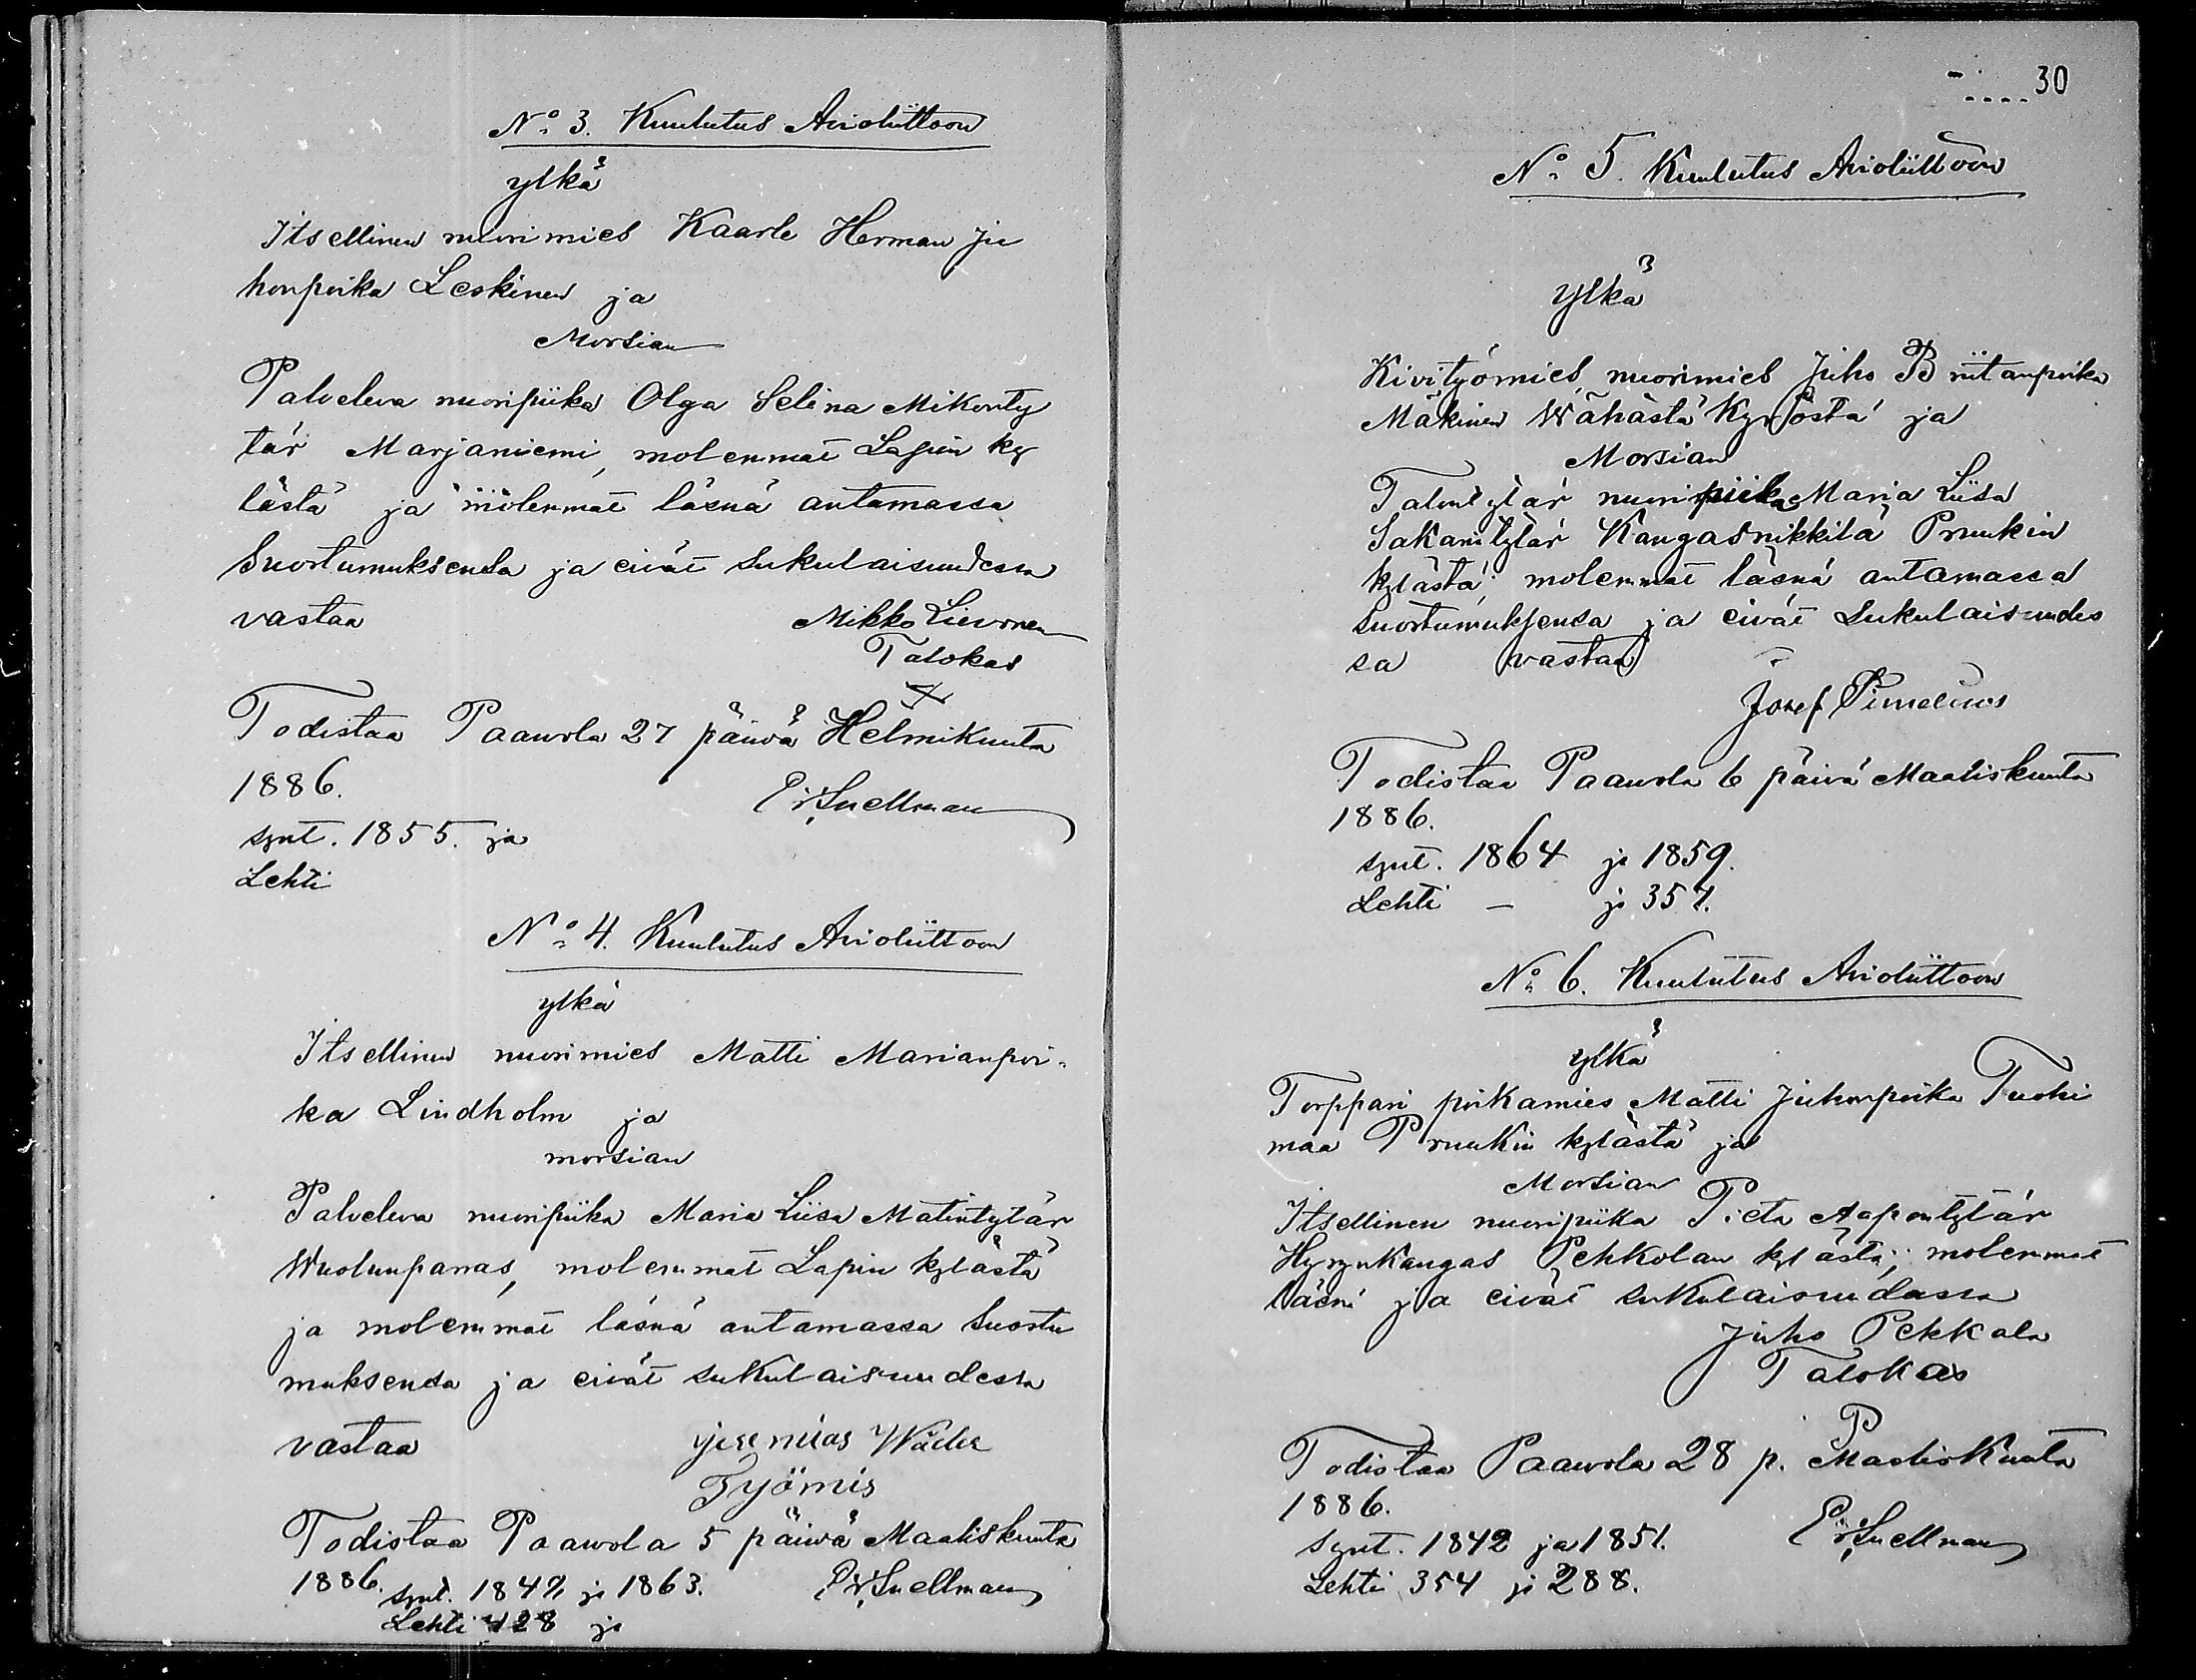 No 3. Kuulutus Avioliittoon
ylkä
Itsellinen nuorimies Kaarle Herman Ju
honpoika Leskinen ja
Morsian
Palveleva nuoripiika Olga Selina Mikonty
tär Marjaniemi, molemmat Lapin ky
lästä ja molemmat läsnä antamassa
Suostumuksensa ja eivät sukulaisuudessa
vastaa Mikko Lievonen
Talokas
Todistaa Paavola 27 päivä Helmikuuta
1886. Snellman
synt. 1855. ja
Lehti
No 4. Kuulutus Avioliittoon
ylkä
Itsellinen nuorimies Matti Marianpoi-
ka Lindholm ja
morsian
Palveleva nuoripiika Maria Liisa Matintytär
Wuolunparras, molemmat Lapin kylästä
ja molemmat läsnä antamassa Suostu
muksensa ja eivät sukulaisuudessa
vastaa jeremias
Työmis
Todistaa Paawola 5 päiwä Maaliskuuta
1886. synt. 1847 ja 1863. Snellman
Lehti 428 ja
30
No 5. Kuulutus Avioliittoon
ylkä
Kivityömies, nuorimies Juho Briitanpoika
Mäkinen Wähästä Kyröstä ja
Morsian
Talontytär nuoripiika Maria Liisa
Sakaritytär Kangasnikkilä Pruukin
kylästä; molemmat läsnä antamassa
suostumuksensa ja eivät Sukulaisuudes
sa vastaa
Josef Pimelius
Todistaa Paawola 6 päivä Maaliskuuta
1886.
synt. 1864 ja 1859.
Lehti — ja 357.
No 6. Kuulutus Avioliittoon
ylkä
Torppari poikamies Matti Juhonpoika Tuohi
maa Pruukin kylästä ja
Morsian
Itsellinen nuoripiika Pieta Aapontytär
Hyrynkangas Pehkolan kylästä; molemmat
läsnä ja eivät sukulaisuudessa
Juho Pekkala
Talokas
Todistaa Paawola 28 p. Maaliskuuta
1886.
synt. 1842 ja 1851. Snellman
Lehti 354 ja 288.